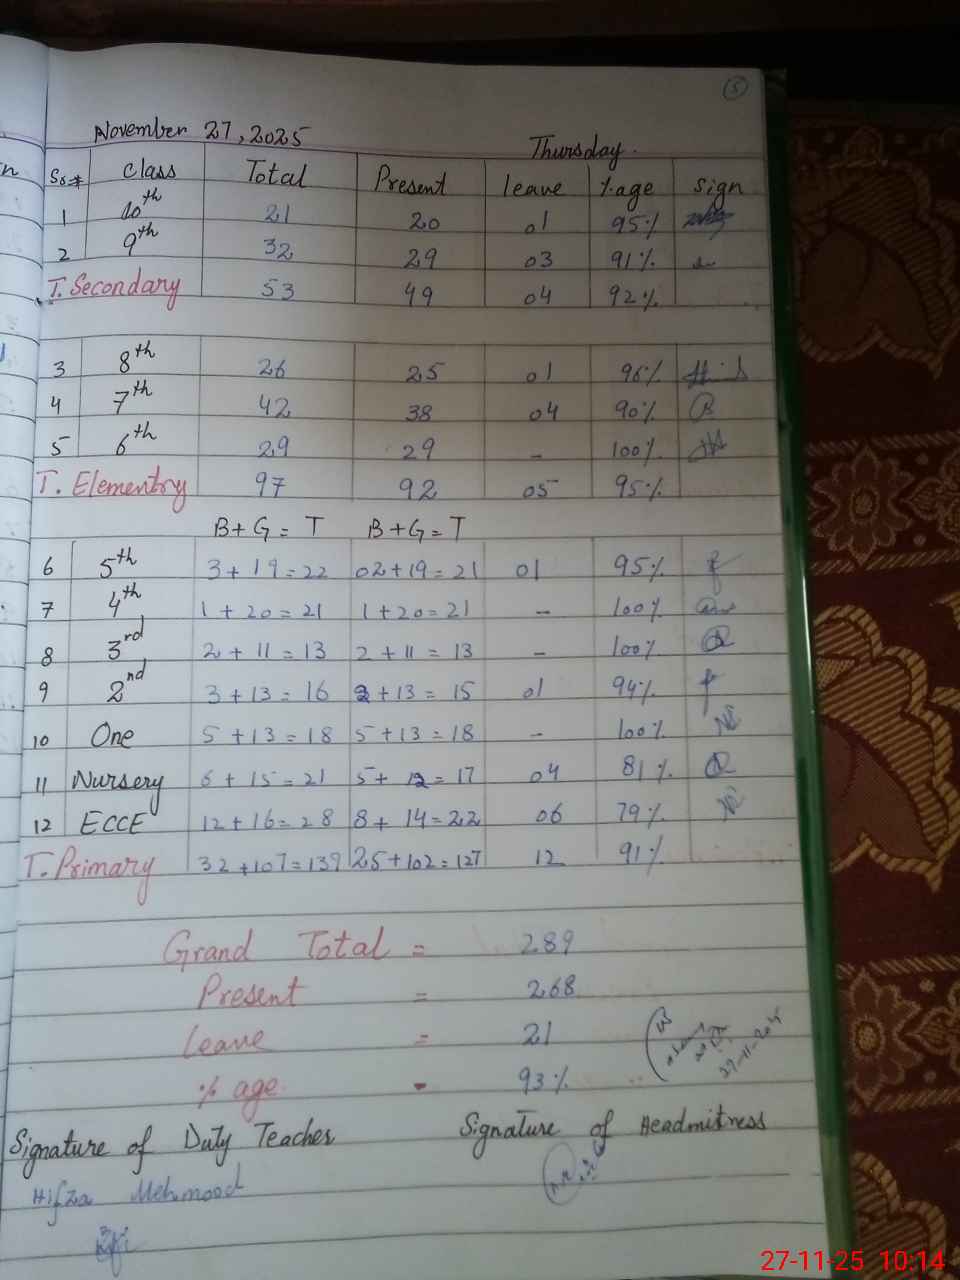 5
November 27, 2025 Thursday.
Sr.# Class Total Present leave %age Sign
1 10th 21 20 01 95%
2 9th 32 29 03 91%
T. Secondary 53 49 04 92%
3 8th 26 25 01 96%
4 7th 42 38 04 90%
5 6th 29 29 - 100%
T. Elementry 97 92 05 95%
B+G = T B+G = T
6 5th 3+19=22 02+19=21 01 95%
7 4th 1+20=21 1+20=21 - 100%
8 3rd 2+11=13 2+11=13 - 100%
9 2nd 3+13=16 2+13=15 01 94%
10 One 5+13=18 5+13=18 - 100%
11 Nursery 6+15=21 5+12=17 04 81%
12 ECCE 12+16=28 8+14=22 06 79%
T. Primary 32+107=139 25+102=127 12 91%
Grand Total = 289
Present = 268
leave = 21
% age - 93%
Signature of Duty Teacher Signature of Headmitress
Hifza Mehmood
27-11-25 10:14